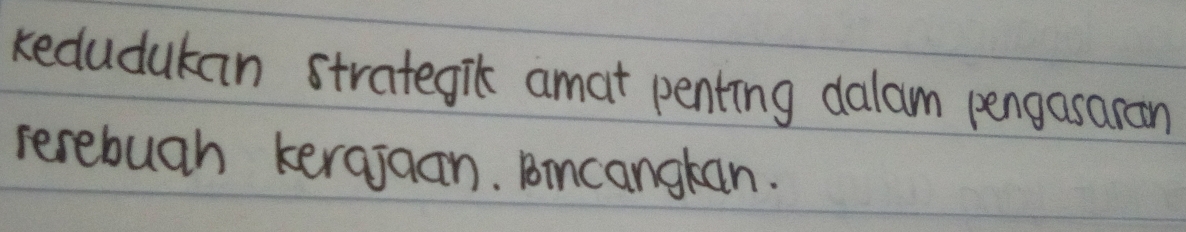 Kedudukan strategik amat penting dalam pengasasan
sesebuah kerajaan. Bincangkan.